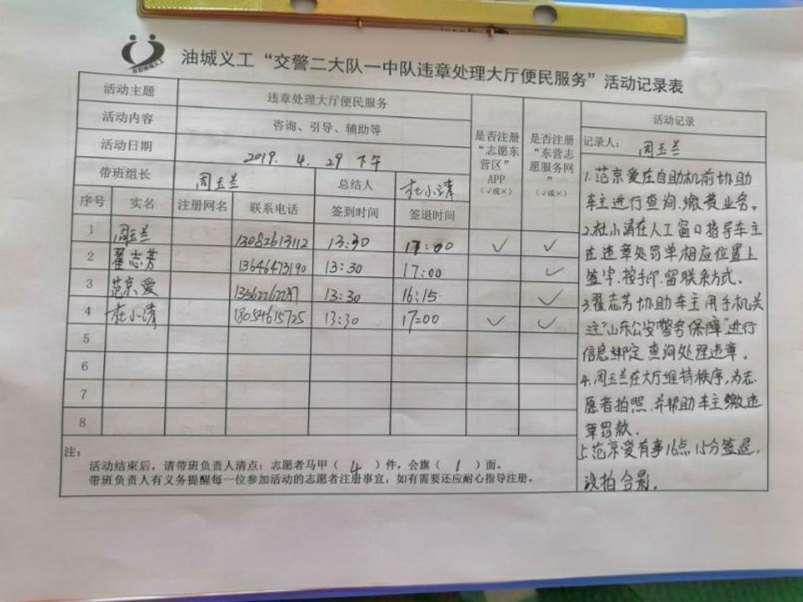 油城义工“交警二大队一中队违章处理大厅便民服务”活动记录表
活动主题 违章处理大厅便民服务
活动内容 咨询、引导、辅助等
活动日期 2019. 4. 29 下午
带班组长 周玉兰 总结人 杜小涛
是否注册“志愿东营区”APP（√或×）
是否注册“东营志愿服务网”（√或×）
序号 实名 注册网名 联系电话 签到时间 签退时间
1 周玉兰 13082613112 13:30 17:00 ✓ ✓
2 翟志芳 13646473190 13:30 17:00 ✓
3 范京爱 13:30 16:15 ✓
4 杜小涛 18054615725 13:30 17:00 ✓ ✓
5
6
7
8
注：
活动结束后，请带班负责人清点：志愿者马甲（ 4 ）件，会旗（ 1 ）面。
带班负责人有义务提醒每一位参加活动的志愿者注册事宜，如有需要还应耐心指导注册。
活动记录
记录人： 周玉兰
1.范京爱在自助机前协助
车主进行查询.缴费业务。
2.杜小涛在人工窗口指导车主
在违章处罚单相应位置上
签字.按手印.留联系方式.
3.翟志芳协助车主用手机关
注“山东公安警务保障”进行
信息绑定.查询处理违章.
4.周玉兰在大厅维持秩序,为志
愿者拍照.并帮助车主缴违
章罚款.
5.范京爱有事16点15分签退.
没拍合影.